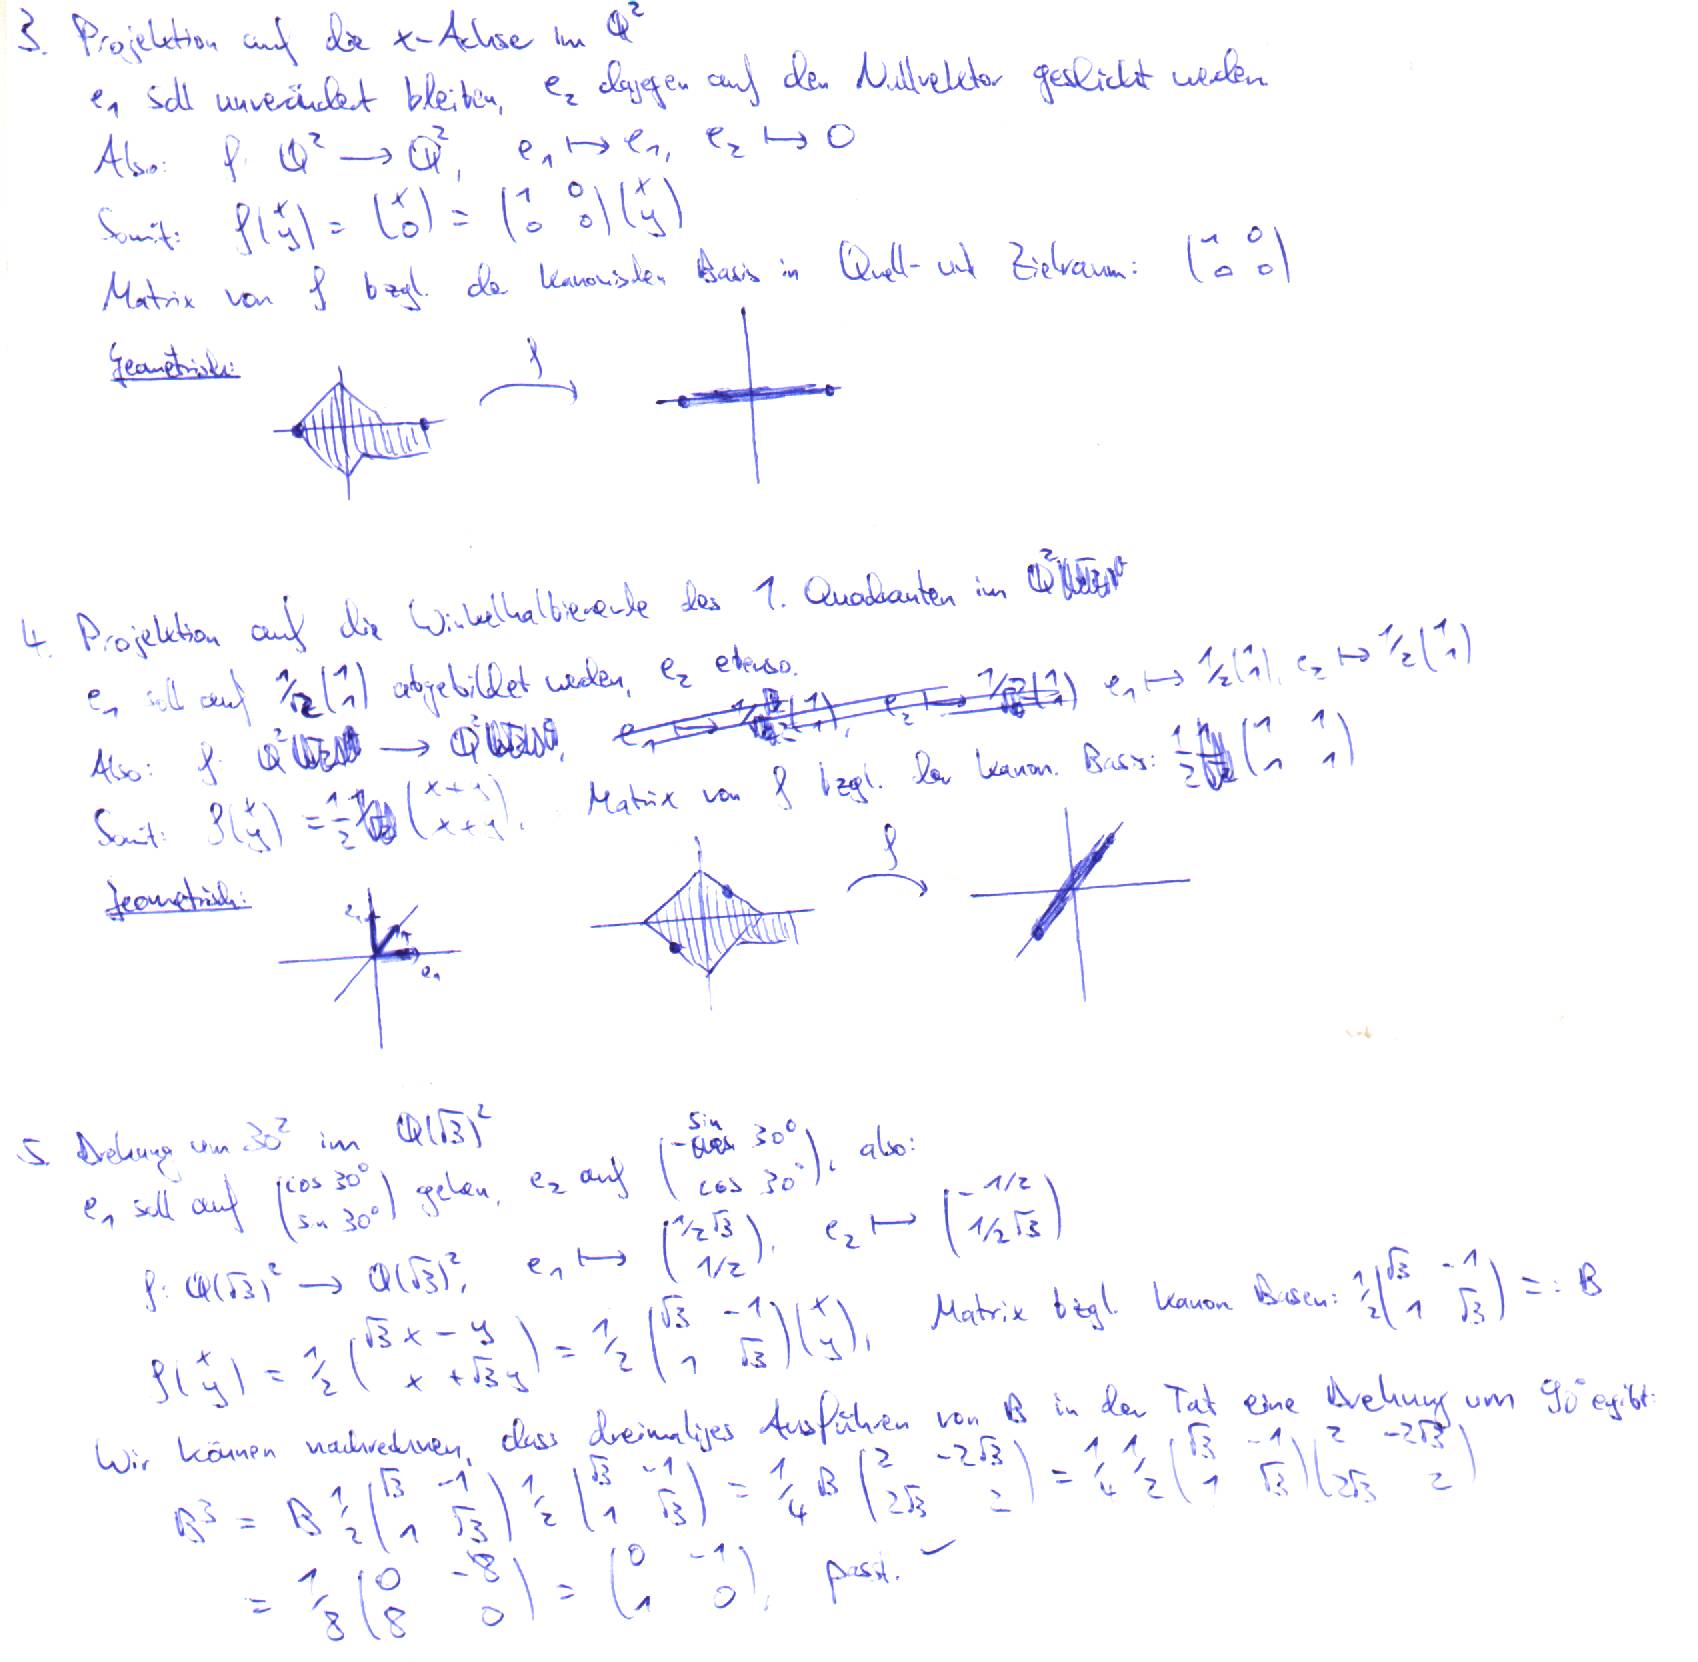 3. Projektion auf die x-Achse im ℚ²
e₁ soll unverändert bleiben, e₂ dagegen auf den Nullvektor geschickt werden
Also: f: ℚ² → ℚ², e₁ ↦ e₁, e₂ ↦ 0
Somit: f(x y) = (x 0) = (1 0 / 0 0)(x y)
Matrix von f bzgl. der kanonischen Basis in Quell- und Zielraum: (1 0 / 0 0)
Geometrisch:
f
4. Projektion auf die Winkelhalbierende des 1. Quadranten im ℚ²
e₁ soll auf 1/2 (1 1) abgebildet werden, e₂ ebenso.
Also: f: ℚ² → ℚ², e₁ ↦ 1/2 (1 1), e₂ ↦ 1/2 (1 1)
Somit: f(x y) = 1/2 (x+y / x+y). Matrix von f bzgl. der kanon. Basis: 1/2 (1 1 / 1 1)
Geometrisch:
e₁
f
5. Drehung um 30² im ℚ(√3)²
e₁ soll auf (cos 30° / sin 30°) gehen, e₂ auf (-sin 30° / cos 30°), also:
f: ℚ(√3)² → ℚ(√3)², e₁ ↦ (1/2√3 / 1/2), e₂ ↦ (-1/2 / 1/2√3)
f(x y) = 1/2 (√3x - y / x + √3y) = 1/2 (√3 -1 / 1 √3)(x y), Matrix bzgl. kanon Basen: 1/2 (√3 -1 / 1 √3) =: B
Wir können nachrechnen, dass dreimaliges Ausführen von B in der Tat eine Drehung um 90° ergibt:
B³ = B 1/2 (√3 -1 / 1 √3) 1/2 (√3 -1 / 1 √3) = 1/4 B (2 -2√3 / 2√3 2) = 1/4 1/2 (√3 -1 / 1 √3)(2 -2√3 / 2√3 2)
= 1/8 (0 -8 / 8 0) = (0 -1 / 1 0), passt. ✓